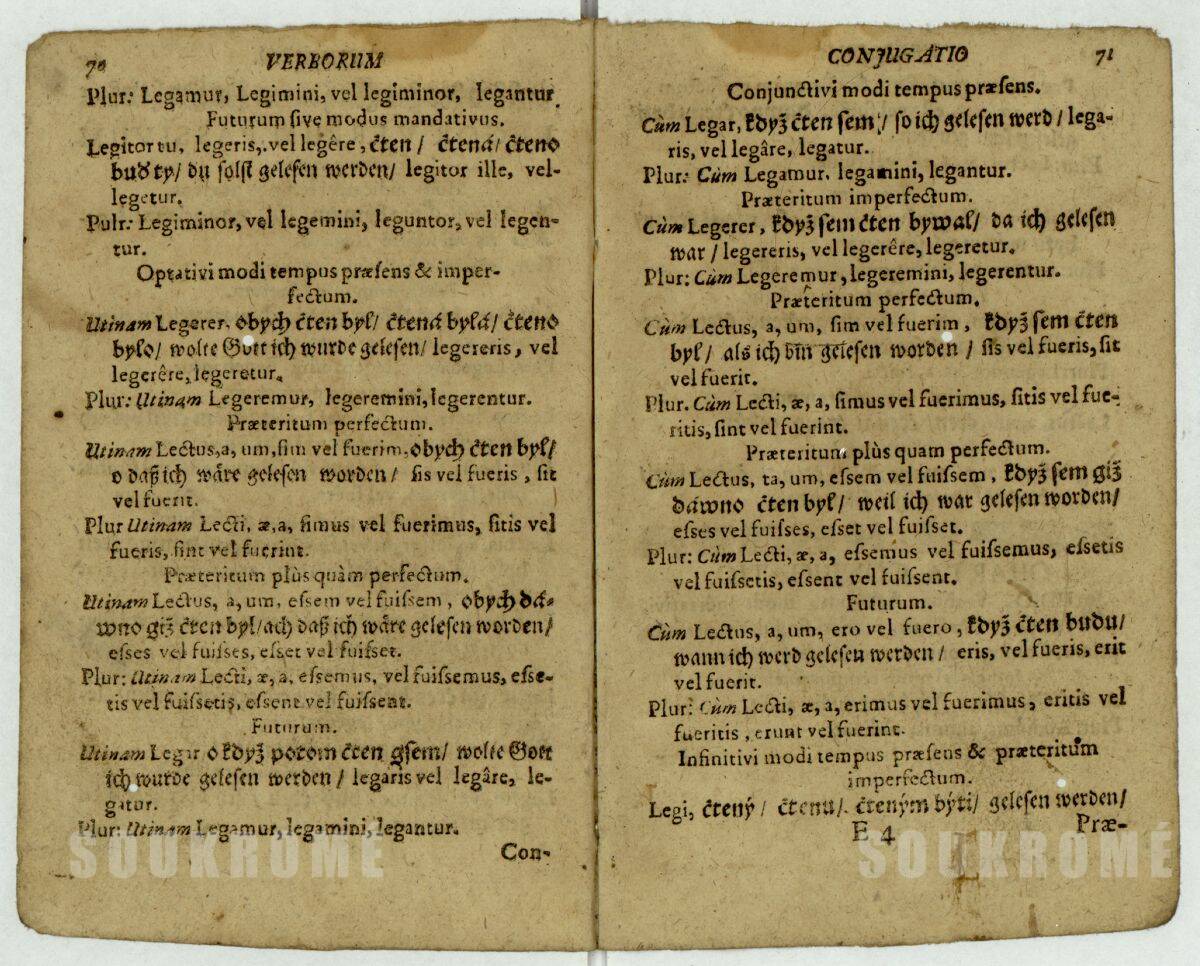 70
VERBORUM
Plur: Legamur, Legimini, vel legiminor, legantur.
Futurum ſive modus mandativus.
Legitor tu, legeris, vel legêre, čten / čtená / čteno
buď ty / du ſolſt geleſen werden / legitor ille, vel-
legetur.
Pulr: Legiminor, vel legemini, leguntor, vel legen-
tur.
Optativi modi tempus præſens & imper-
fectum.
Utinam Legerer, obych čten byl / čtená bylá / čteno
bylo / wolte Gott ich wurde geleſen / legereris, vel
legerêre, legeretur.
Plur: Utinam Legeremur, legeremini, legerentur.
Præteritum perfectum.
Utinam Lectus, a, um, ſim vel fuerim, obych čten byl /
o daß ich wåre geleſen worden / ſis vel fueris, ſit
vel fuerit.
Plur Utinam Lecti, æ, a, ſimus vel fuerimus, ſitis vel
fueris, ſint vel fuerint.
Præteritum plùs quàm perfectum.
Utinam Lectus, a, um, eſsem vel fuiſsem, obych dá-
wno giž čten byl / ach daß ich wåre geleſen worden /
eſses vel fuiſses, eſset vel fuiſset.
Plur: Utinam Lecti, æ, a, eſsemus, vel fuiſsemus, eſse-
tis vel fuiſsetis, eſsent vel fuiſsent.
Futurum.
Utinam Legar o když potom čten gſem / wolte Gott
ich wurde geleſen werden / legaris vel legâre, le-
gatur.
Plur: Utinam Legamur, legamini, legantur.
Con-
CONJUGATIO
71
Conjunctivi modi tempus præſens.
Cùm Legar, když čten ſem / ſo ich geleſen werd / lega-
ris, vel legâre, legatur.
Plur: Cùm Legamur, legamini, legantur.
Præteritum imperfectum.
Cùm Legerer, když ſem čten bywal / da ich geleſen
war / legereris, vel legerêre, legeretur.
Plur: Cùm Legeremur, legeremini, legerentur.
Præteritum perfectum.
Cùm Lectus, a, um, ſim vel fuerim, když ſem čten
byl / als ich bin geleſen worden / ſis vel fueris, ſit
vel fuerit.
Plur. Cùm Lecti, æ, a, ſimus vel fuerimus, ſitis vel fue-
ritis, ſint vel fuerint.
Præteritum plùs quam perfectum.
Cùm Lectus, ta, um, eſsem vel fuiſsem, když ſem giž
dáwno čten byl / weil ich war geleſen worden /
eſses vel fuiſses, eſset vel fuiſset.
Plur: Cùm Lecti, æ, a, eſsemus vel fuiſsemus, eſsetis
vel fuiſsetis, eſsent vel fuiſsent.
Futurum.
Cùm Lectus, a, um, ero vel fuero, když čten budu /
wann ich werd geleſen werden / eris, vel fueris, erit
vel fuerit.
Plur: Cùm Lecti, æ, a, erimus vel fuerimus, eritis vel
fueritis, erunt vel fuerint.
Infinitivi modi tempus præſens & præteritum
imperfectum.
Legi, čtený / čtenu / čteným býti / geleſen werden /
E 4
Præ-
SOUKROMÉ
SOUKROMÉ